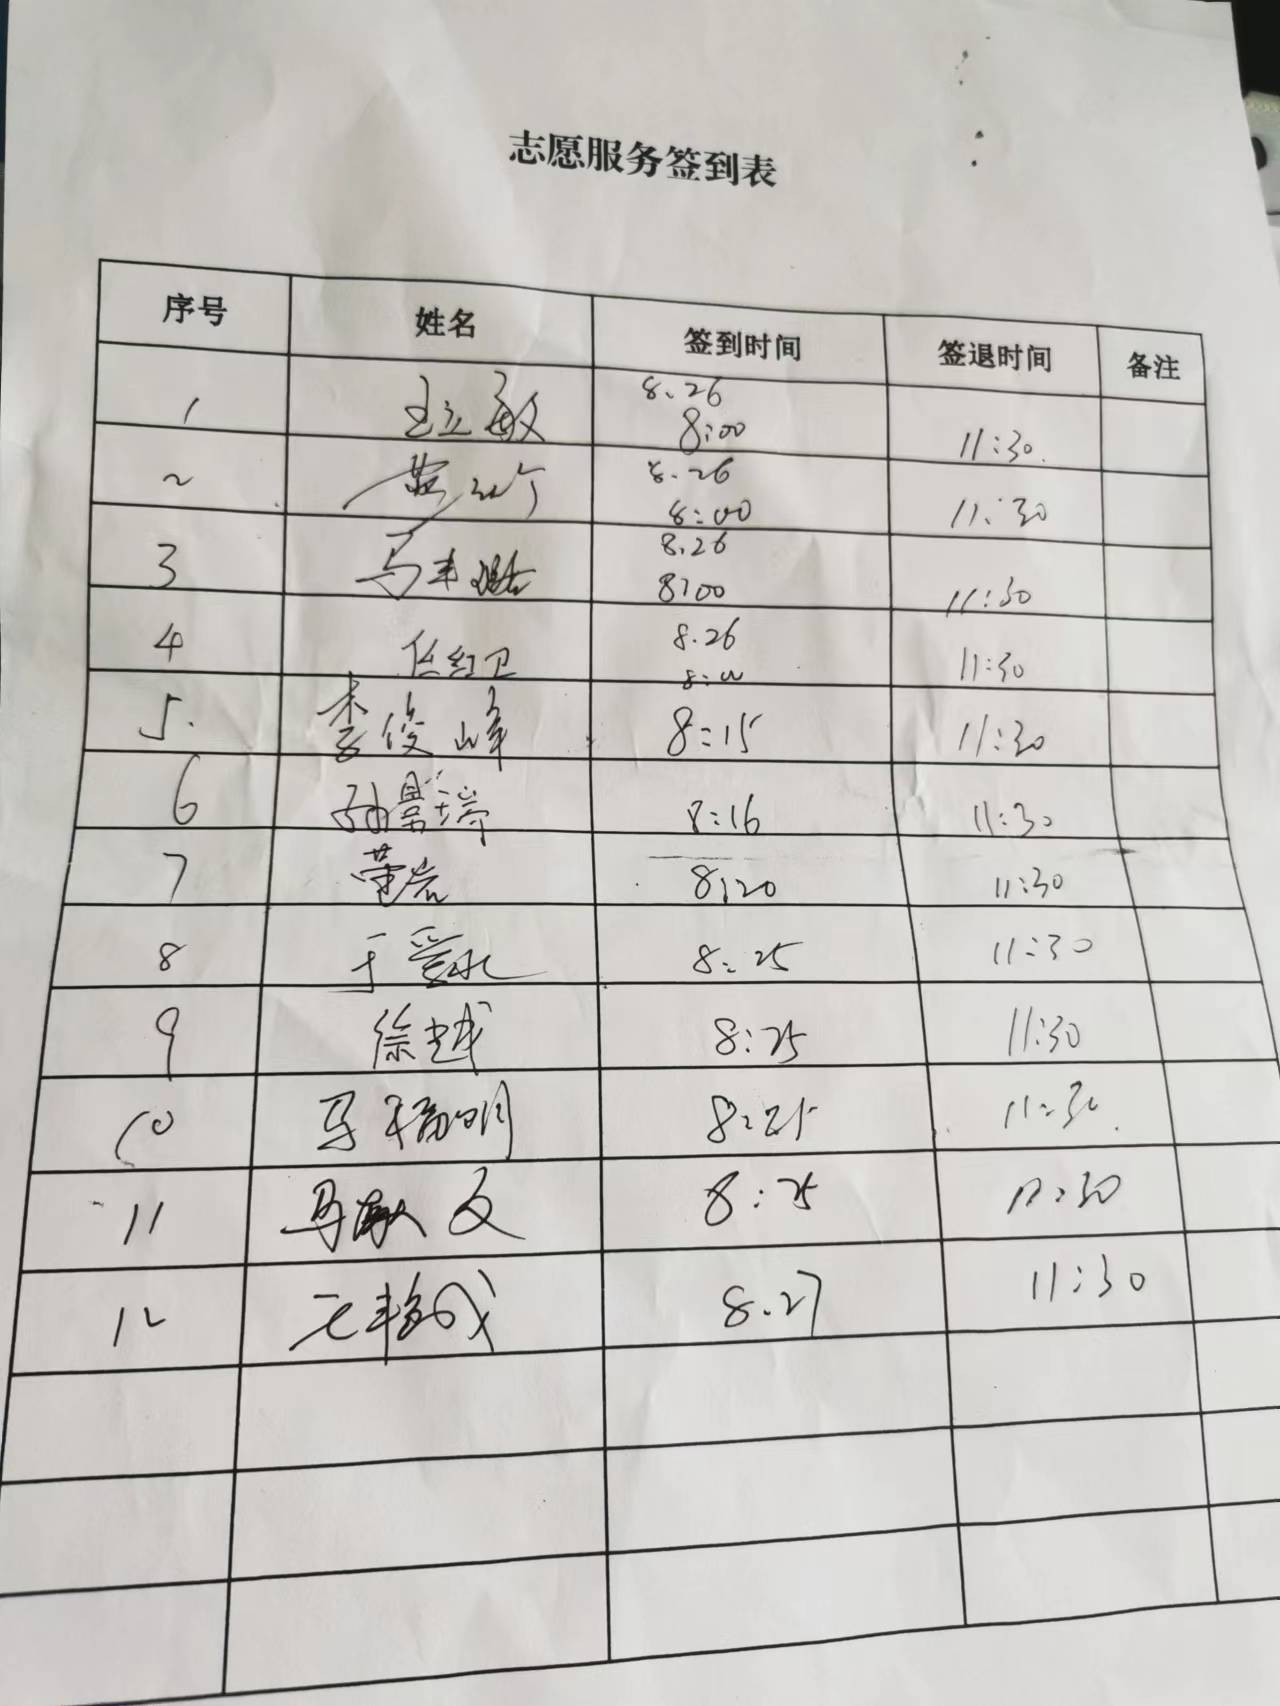 志愿服务签到表
序号 姓名 签到时间 签退时间 备注
1 王立敏 8.26 8:00 11:30
2 8.26 8:00 11:30
3 马丰 8.26 8:00 11:30
4 任红卫 8.26 8:00 11:30
5. 李俊峰 8:15 11:30
6 孙景瑞 8:16 11:30
7 董岩 8:20 11:30
8 于爱水 8:25 11:30
9 徐越 8:25 11:30
10 马福明 8:25 11:30
11 马 文 8:25 11:30
12 8.27 11:30